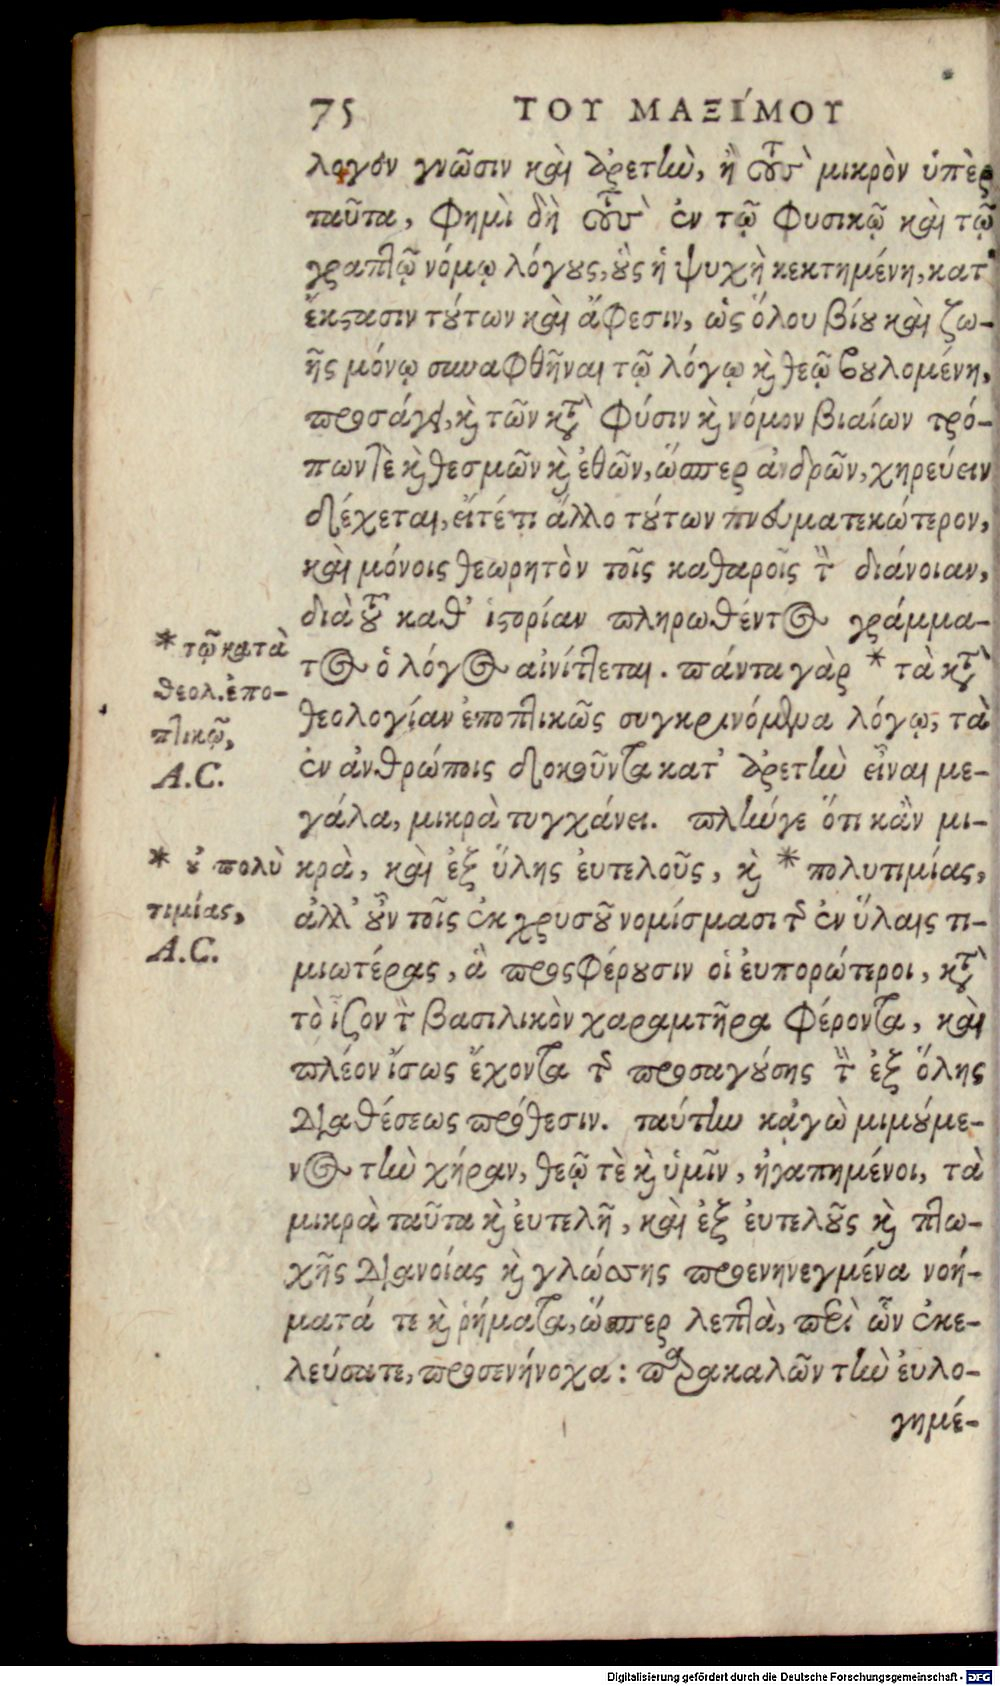 75 ΤΟΥ ΜΑΞΙΜΟΥ
λογον γνῶσιν καὶ ἀρετὴν, ἢ τοὺς μικρὸν ὑπὲρ
ταῦτα, φημὶ δὴ τοὺς ἐν τῷ φυσικῷ καὶ τῷ
γραπτῷ νόμῳ λόγους, οὓς ἡ ψυχὴ κεκτημένη, κατ'
ἔκστασιν τούτων καὶ ἄφεσιν, ὡς ὅλου βίου καὶ ζω-
ῆς μόνῳ συναφθῆναι τῷ λόγῳ καὶ θεῷ βουλομένη,
προσάγει, καὶ τῶν κατὰ φύσιν καὶ νόμον βιαίων τρό-
πων τὲ καὶ θεσμῶν καὶ ἐθῶν, ὥσπερ ἀνδρῶν, χηρεύειν
δέχεται, εἴτέ τι ἄλλο τούτων πνευματικώτερον,
καὶ μόνοις θεωρητὸν τοῖς καθαροῖς τὴν διάνοιαν,
διὰ τοῦ καθ' ἱστορίαν πληρωθέντος γράμμα-
τος ὁ λόγος αἰνίττεται. πάντα γὰρ * τὰ κατὰ
θεολογίαν ἐποπτικῶς συγκρινόμενα λόγῳ, τὰ
ἐν ἀνθρώποις δοκοῦντα κατ' ἀρετὴν εἶναι με-
γάλα, μικρὰ τυγχάνει. πλήν γε ὅτι κἂν μι-
κρὰ, καὶ ἐξ ὕλης ἐυτελοῦς, καὶ * πολυτιμίας,
ἀλλ' οὖν τοῖς ἐκ χρυσοῦ νομίσμασι τῆς ἐν ὕλαις τι-
μιωτέρας, ἃ προσφέρουσιν οἱ ἐυπορώτεροι, κατὰ
τὸ ἶζον τὸν βασιλικὸν χαρακτῆρα φέροντα, καὶ
πλέον ἴσως ἔχοντα τῆς προσαγούσης τὴν ἐξ ὅλης
διαθέσεως πρόθεσιν. ταύτην κᾀγὼ μιμούμε-
νος τὴν χήραν, θεῷ τὲ καὶ ὑμῖν, ἠγαπημένοι, τὰ
μικρὰ ταῦτα καὶ ἐυτελῆ, καὶ ἐξ ἐυτελοῦς καὶ πτω-
χῆς διανοίας καὶ γλώσσης προενηνεγμένα νοή-
ματά τε καὶ ῥήματα, ὥσπερ λεπτὰ, περὶ ὧν ἐκε-
λεύσατε, προσενήνοχα: παρακαλῶν τὴν ἐυλο-
γημέ-
* τῷ κατὰ
θεολ. ἐπο-
πτικῷ,
A.C.
* οὐ πολὺ
τιμίας,
A.C.
Digitalisierung gefördert durch die Deutsche Forschungsgemeinschaft - DFG